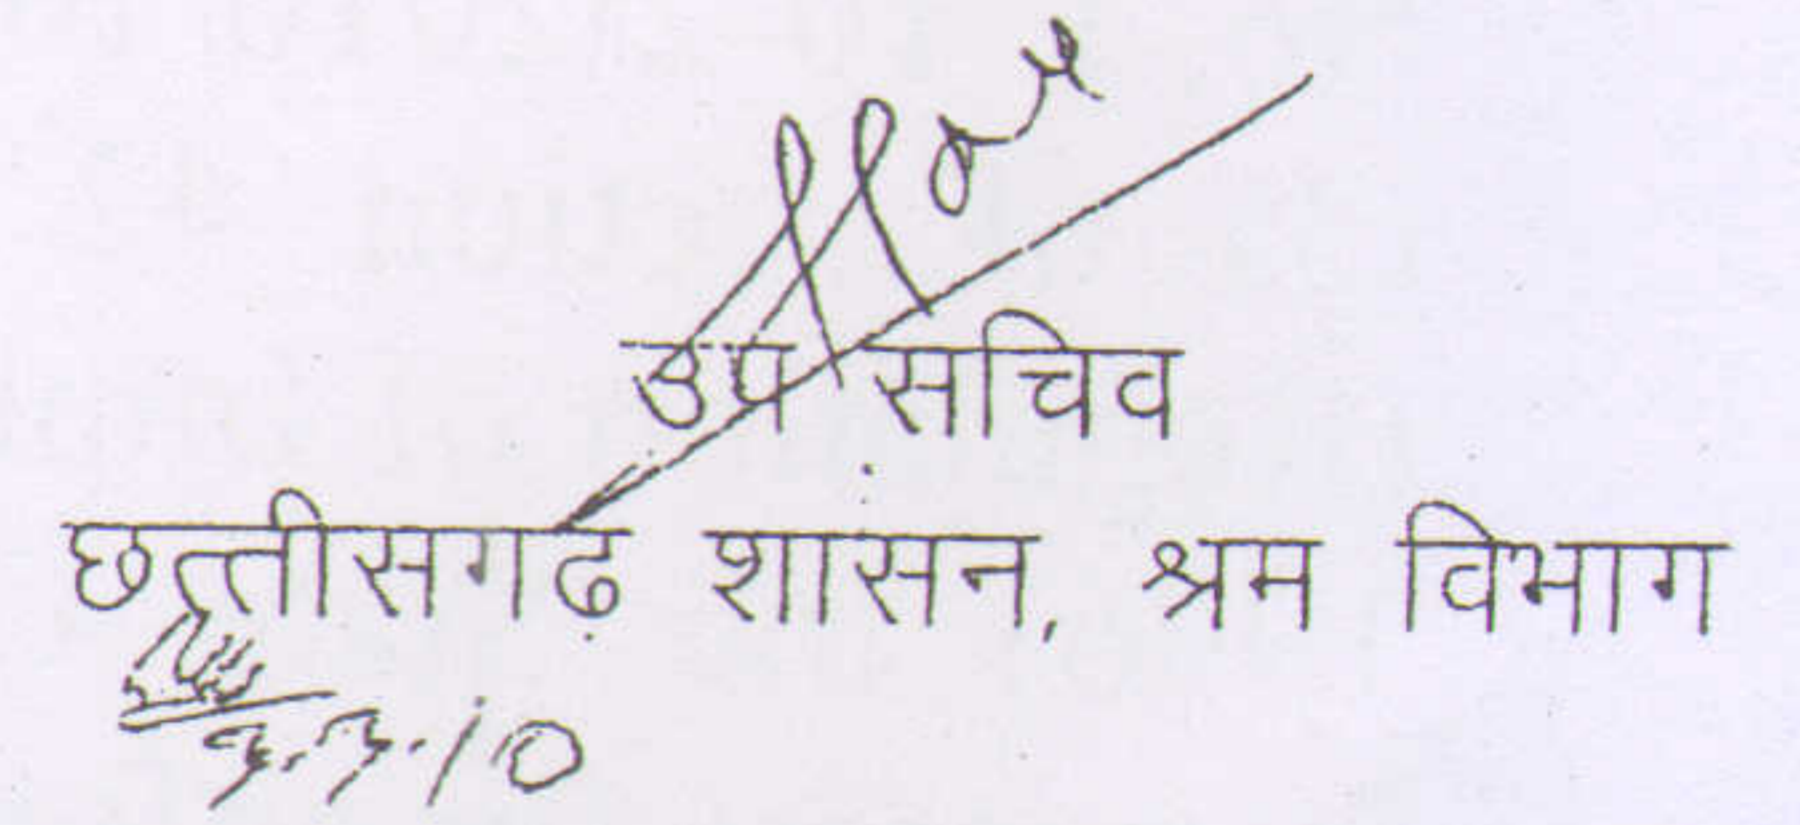 उप सचिव
छत्तीसगढ़ शासन, श्रम विभाग
3.3.10